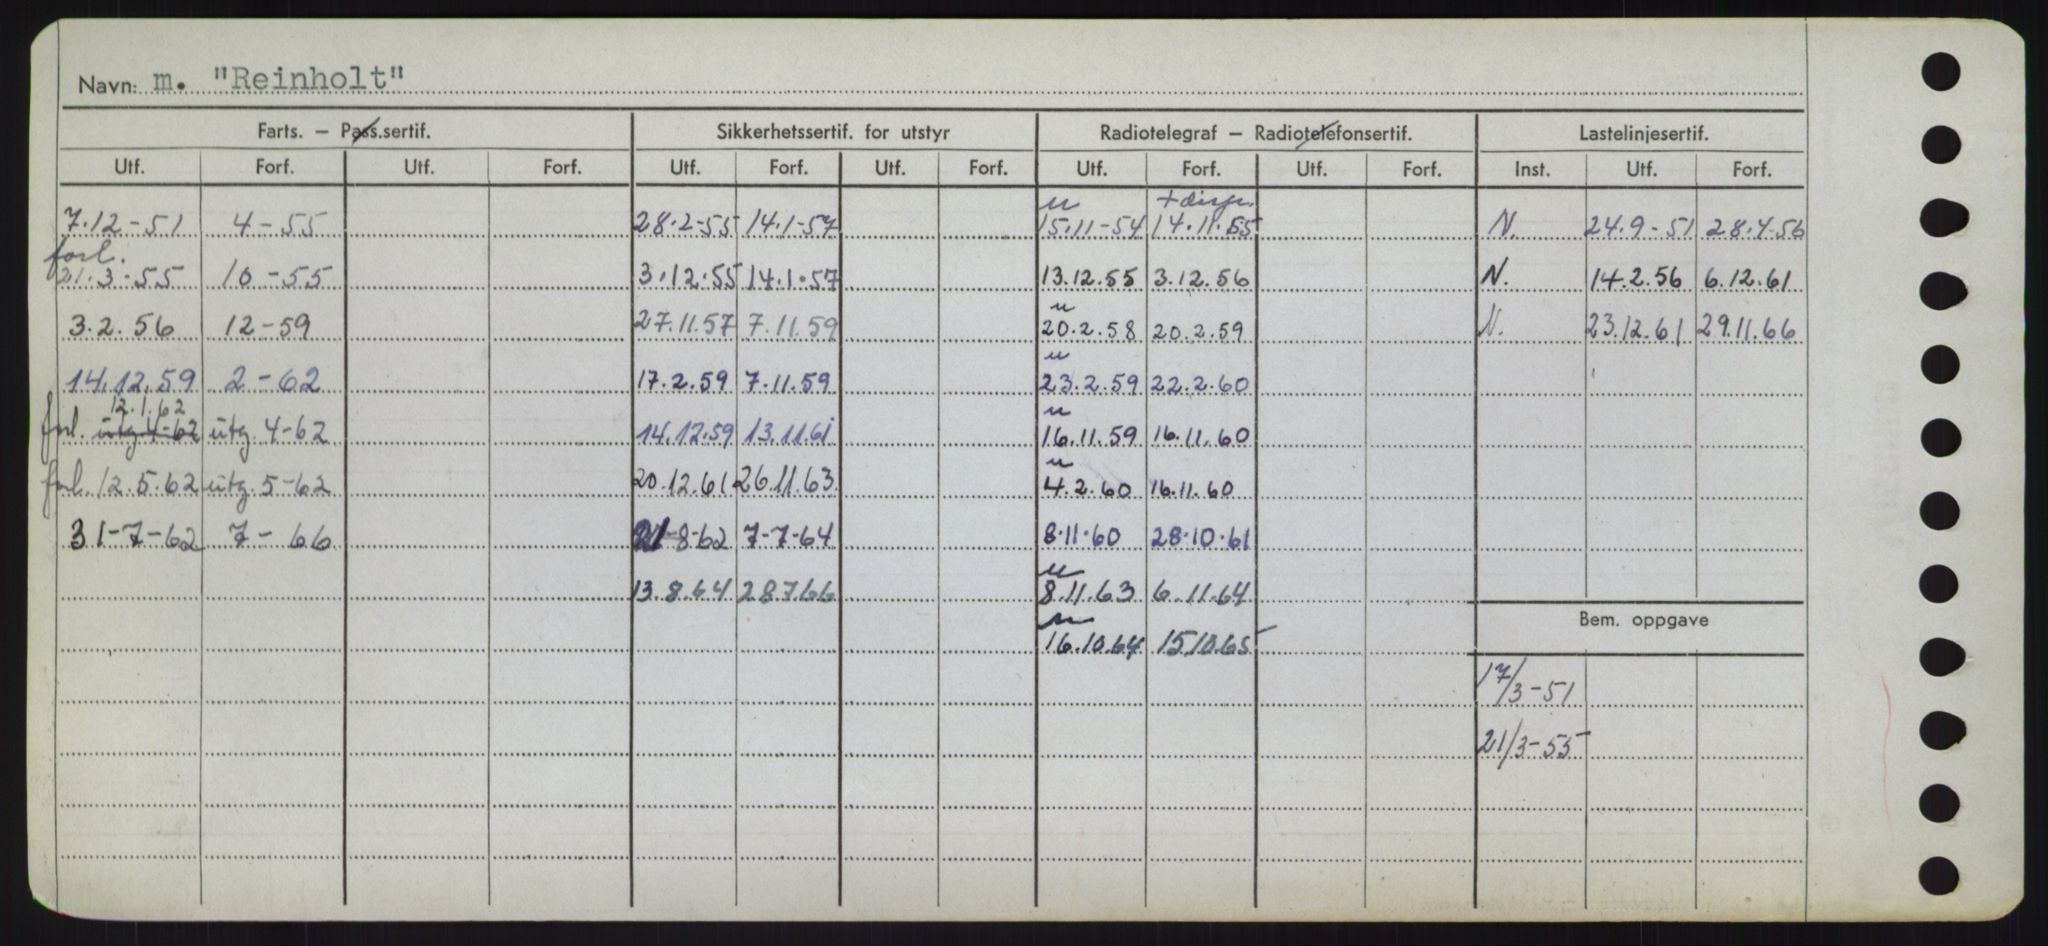 Navn: m. "Reinholt"
Farts. – Pass.sertif. Sikkerhetssertif. for utstyr Radiotelegraf – Radiotelefonsertif. Lastelinjesertif.
Utf. Forf. Utf. Forf. Utf. Forf. Utf. Forf. Utf. Forf. Utf. Forf. Inst. Utf. Forf.
u + disp.
7.12-51 4-55 28.2-55 14.1-57 15.11-54 14.11.55 N. 24.9-51 28.4-56
forl.
21.3-55 10-55 3.12.55 14.1.57 13.12.55 3.12.56 N. 14.2.56 6.12.61
u
3.2.56 12-59 27.11.57 7.11.59 20.2.58 20.2.59 N. 23.12.61 29.11.66
u
14.12.59 2-62 17.2.59 7.11.59 23.2.59 22.2.60
12.1.62 u
forl. utg 4-62 utg. 4-62 14.12.59 13.11.61 16.11.59 16.11.60
u
forl. 12.5.62 utg. 5-62 20.12.61 26.11.63 4.2.60 16.11.60
31-7-62 7-66 21-8-62 7-7-64 8.11.60 28.10.61
u
13.8.64 28766 8.11.63 6.11.64
u
16.10.64 15.10.65
Bem. oppgave
17/3-51
21/3-55